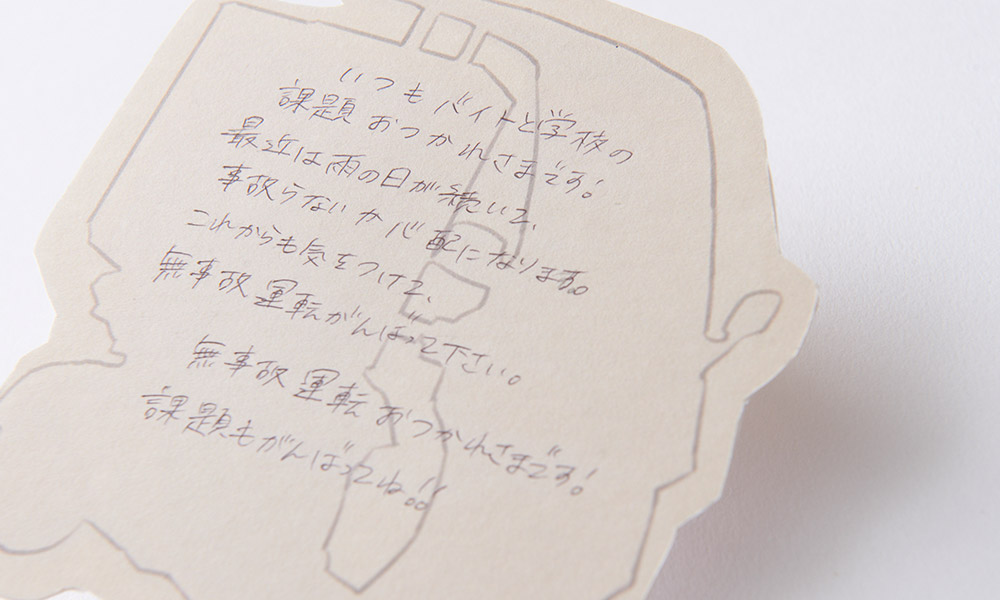 いつもバイトと学校の
課題おつかれさまです!
最近は雨の日が続いて、
事故らないか心配になります。
これからも気をつけて、
無事故運転がんばって下さい。
無事故運転おつかれさまです!
課題もがんばってね!!